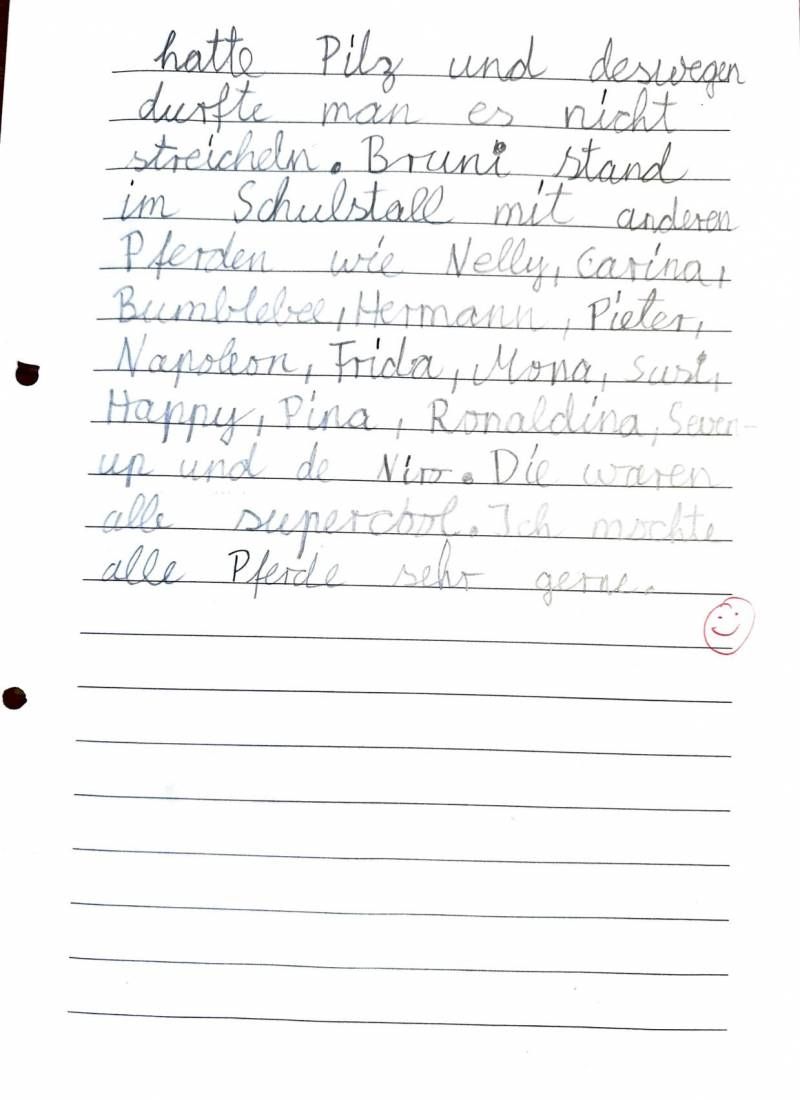 hatte Pilz und deswegen
durfte man es nicht
streicheln. Bruni stand
im Schulstall mit anderen
Pferden wie Nelly, Carina,
Bumblebee, Hermann, Pieter,
Napoleon, Frida, Mona, Susi,
Happy, Pina, Ronaldina, Seven-
up und de Niro. Die waren
alle supercool. Ich mochte
alle Pferde sehr gerne.